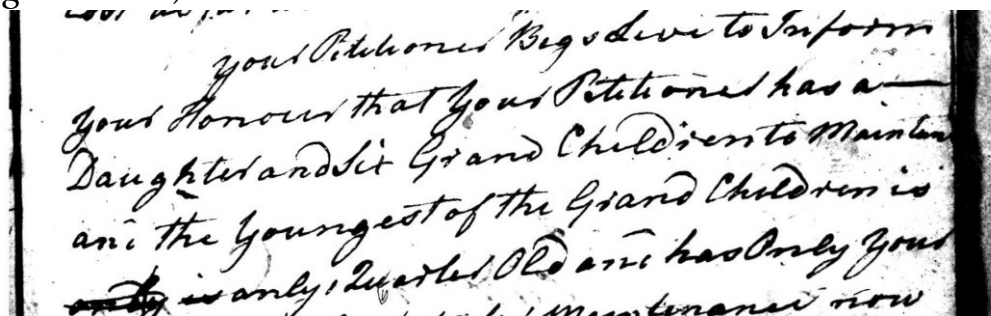 your Petitioner Begs Leve to Inform
your Honour that your Petitioner has a
Daughter and Six Grand Children to Maintan
and the Youngest of the Grand Children is
is only 1 Quarter Old and has Only your
Maintenance now